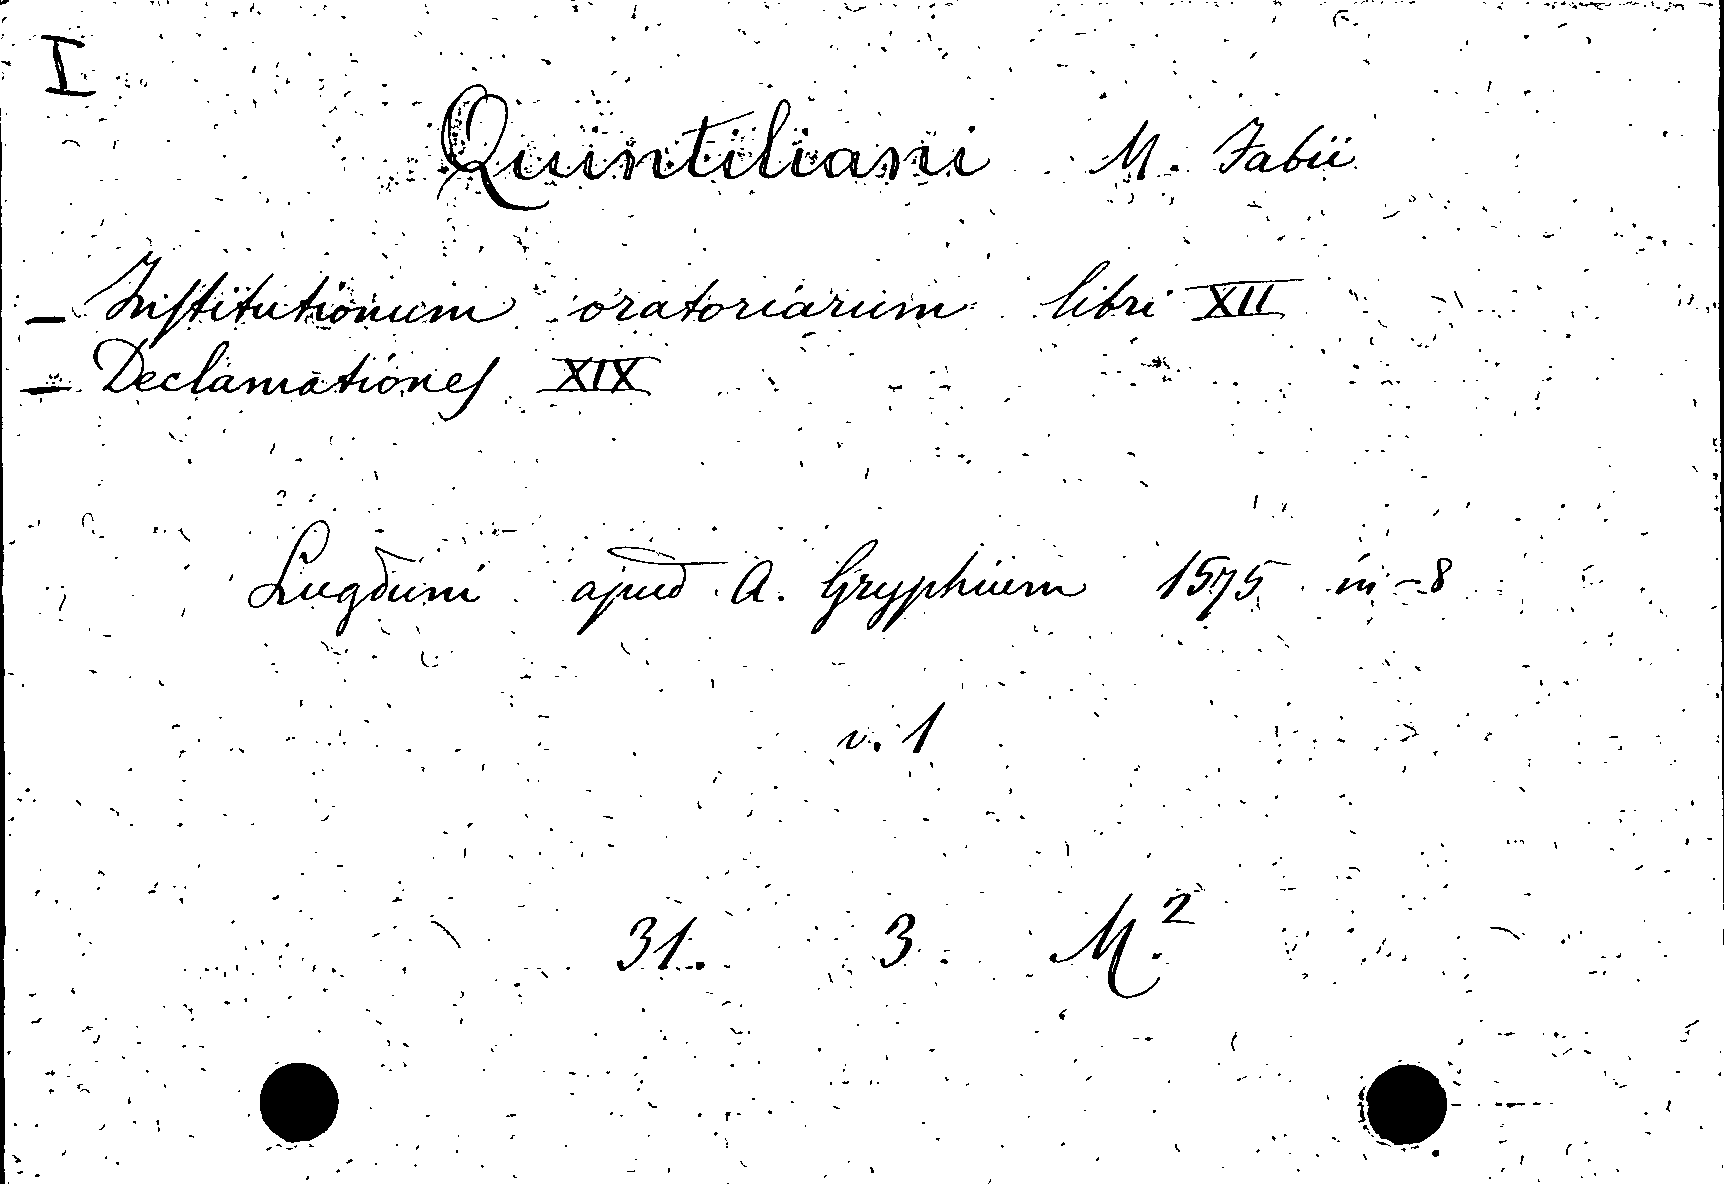 I
Quintiliani M. Fabii
– Institutionum oratoriarum libri XII
– Declamationes XIX
Lugduni apud A. Gryphium 1575 in-8
v. 1
31. 3. M.²